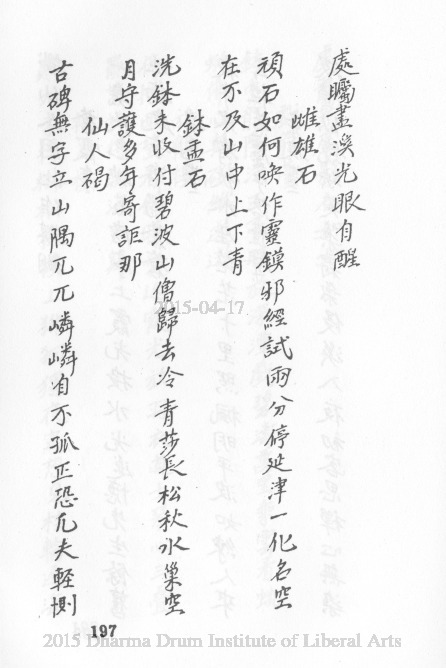 處矚盡溪光眼自醒
雌雄石
頑石如何喚作靈鏌邪經試兩分停延津一化名空
在不及山中上下青
鉢盂石
洗鉢未收付碧波山僧歸去冷青莎長松秋水巢空
月守護多年寄詎那
仙人碣
古碑無字立山隅兀兀嶙嶙自不孤正恐凡夫輕惻
2015-04-17
197
2015 Dharma Drum Institute of Liberal Arts